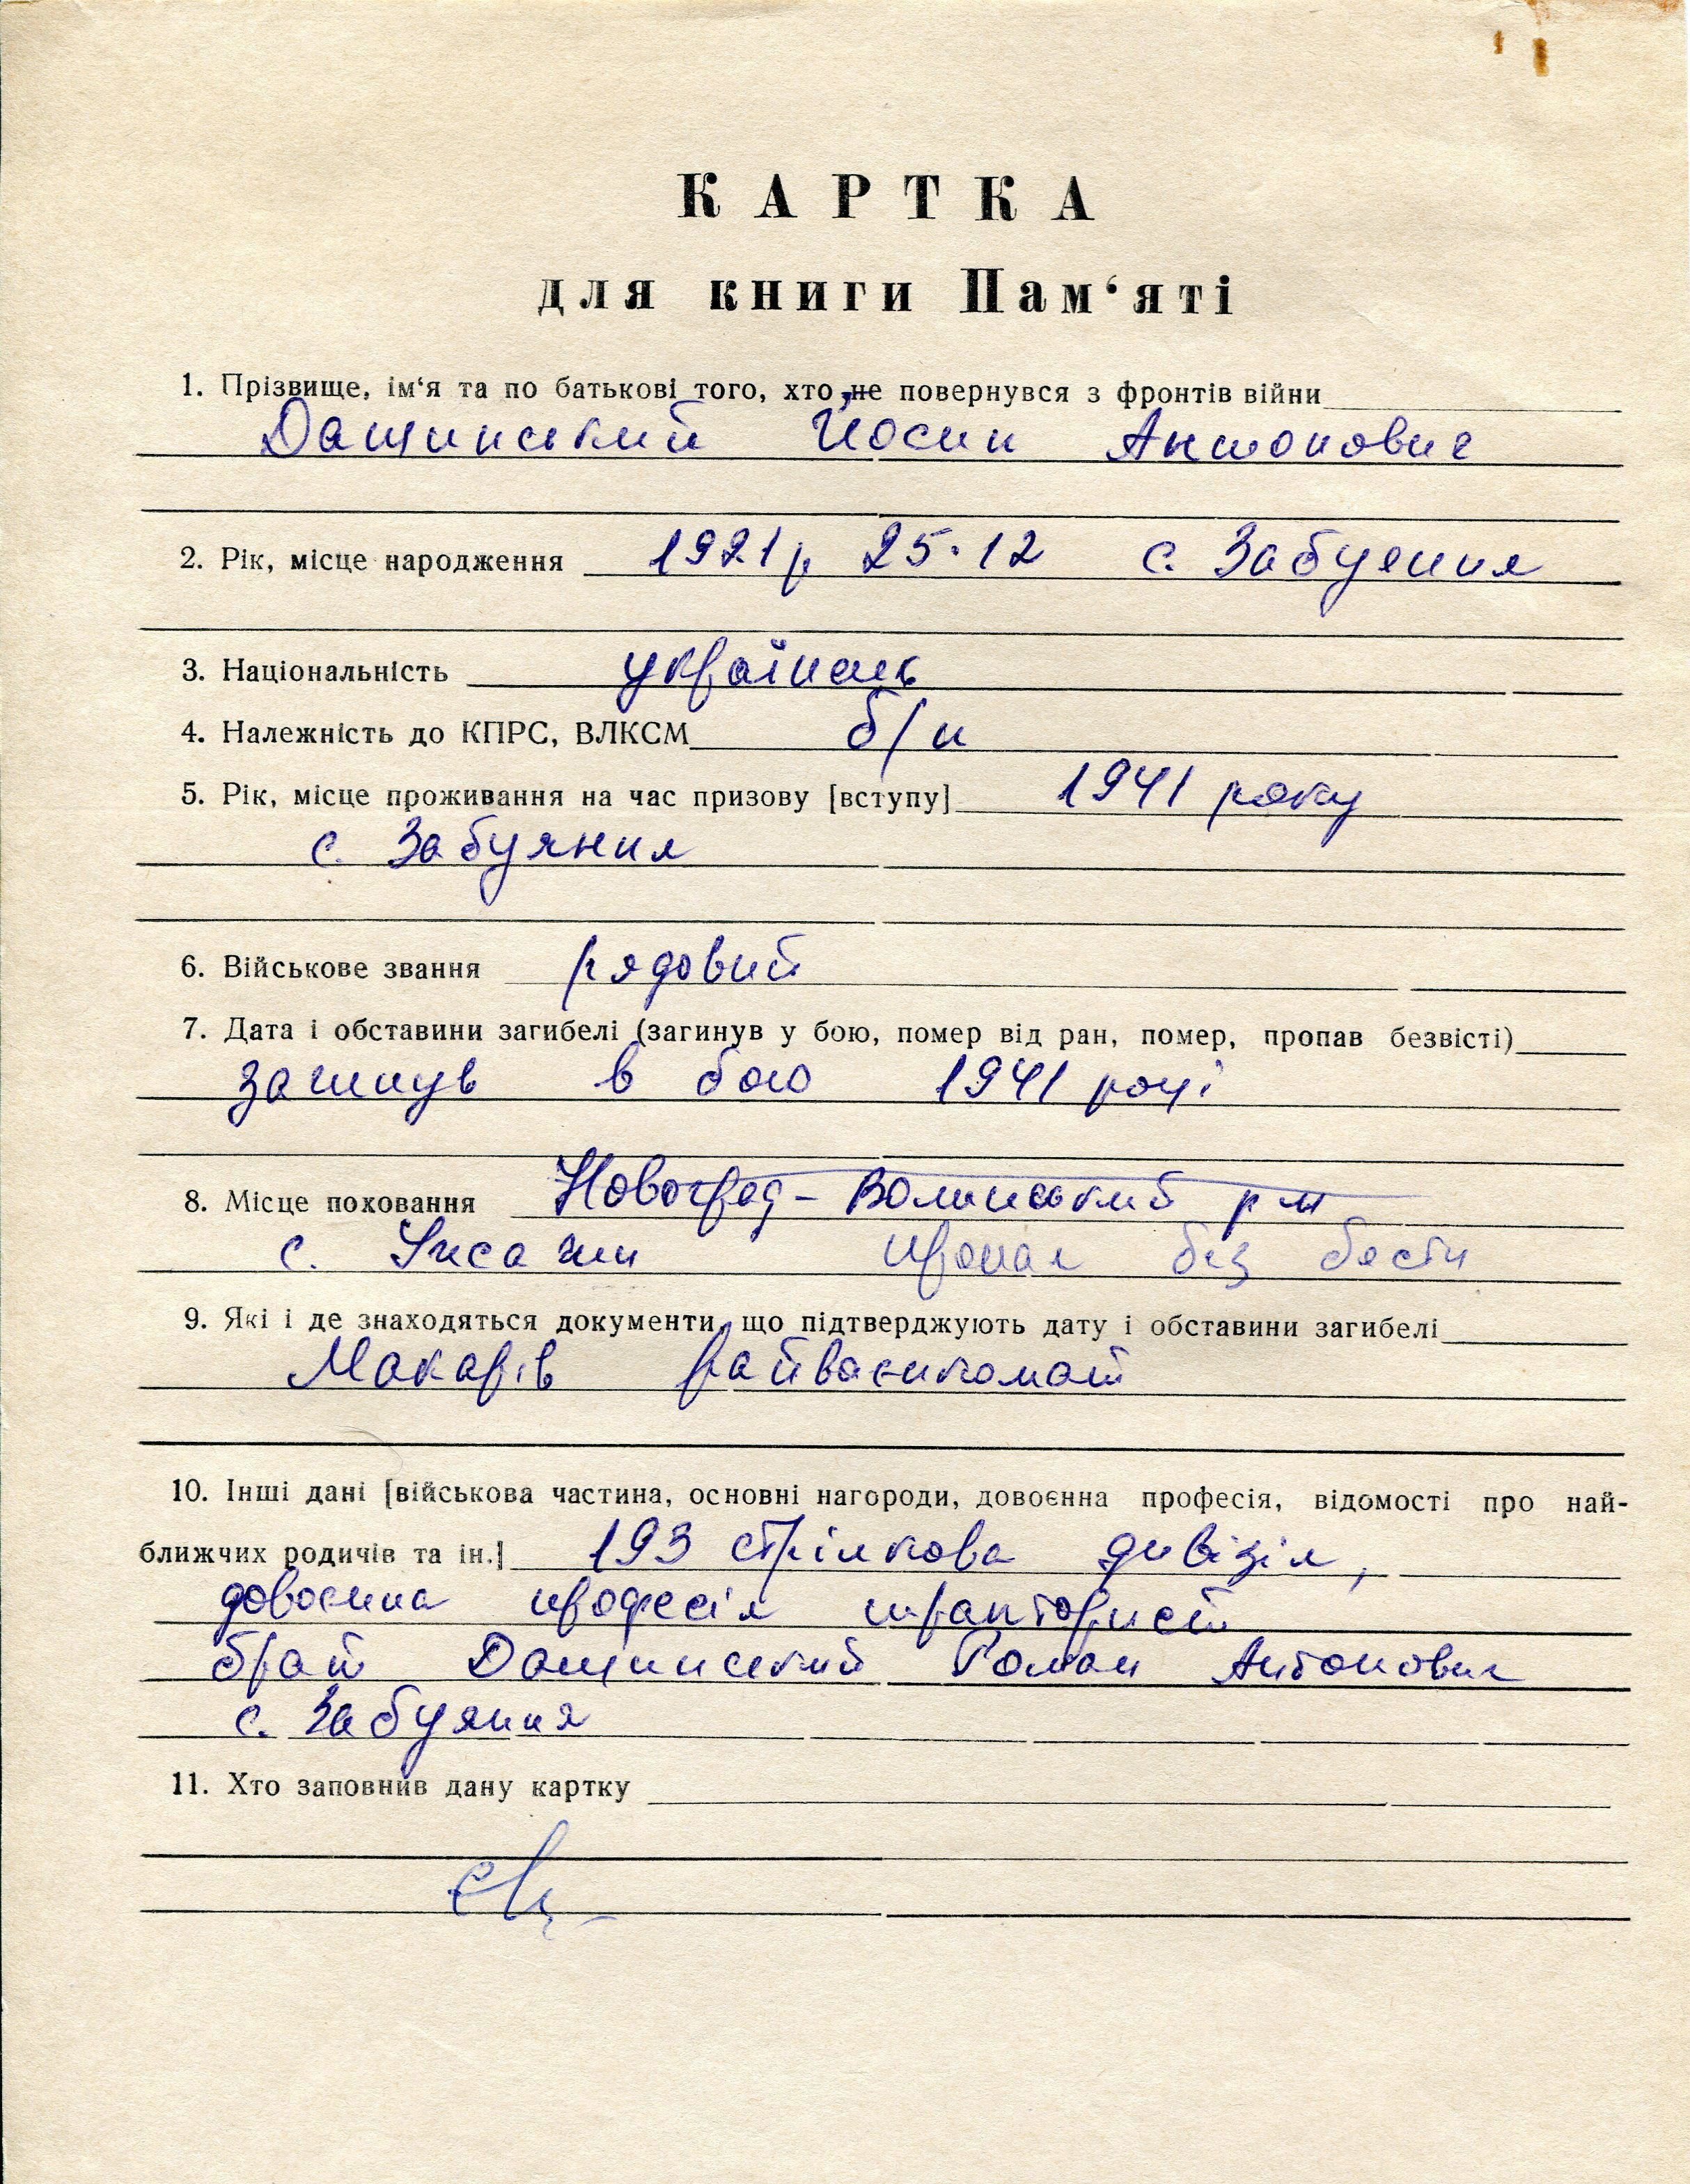 КАРТКА
для книги Пам‘яті
1. Прізвище, ім‘я та по батькові того, хто не повернувся з фронтів війни
Дащинський Йосип Антонович
2. Рік, місце народження 1921 р 25.12 с. Забуяння
3. Національність українець
4. Належність до КПРС, ВЛКСМ б/п
5. Рік, місце проживання на час призову [вступу] 1941 року
с. Забуяння
6. Військове звання рядовий
7. Дата і обставини загибелі (загинув у бою, помер від ран, помер, пропав безвісті)
загинув в бою 1941 році
8. Місце поховання Новоград-Волинський р-н
с. пропал без вести
9. Які і де знаходяться документи, що підтверджують дату і обставини загибелі
Макарів райвоєнкомат
10. Інші дані [військова частина, основні нагороди, довоєнна професія, відомості про най-
ближчих родичів та ін.] 193 стрілкова дивізія,
довоєнна професія тракторист
брат Дащинський Роман Антонович
с. Забуяння
11. Хто заповнив дану картку